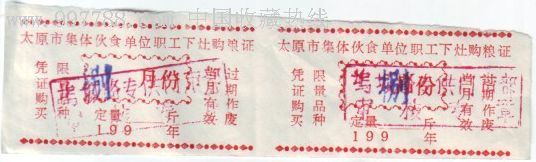 www.997788.com 中国收藏热线
太原市集体伙食单位职工下灶购粮证
凭证购买
限量品种
捌
月份
定量 斤
199 年
当月有效
过期作废
太原市集体伙食单位职工下灶购粮证
凭证购买
限量品种
捌
月份
定量 斤
199 年
当月有效
过期作废